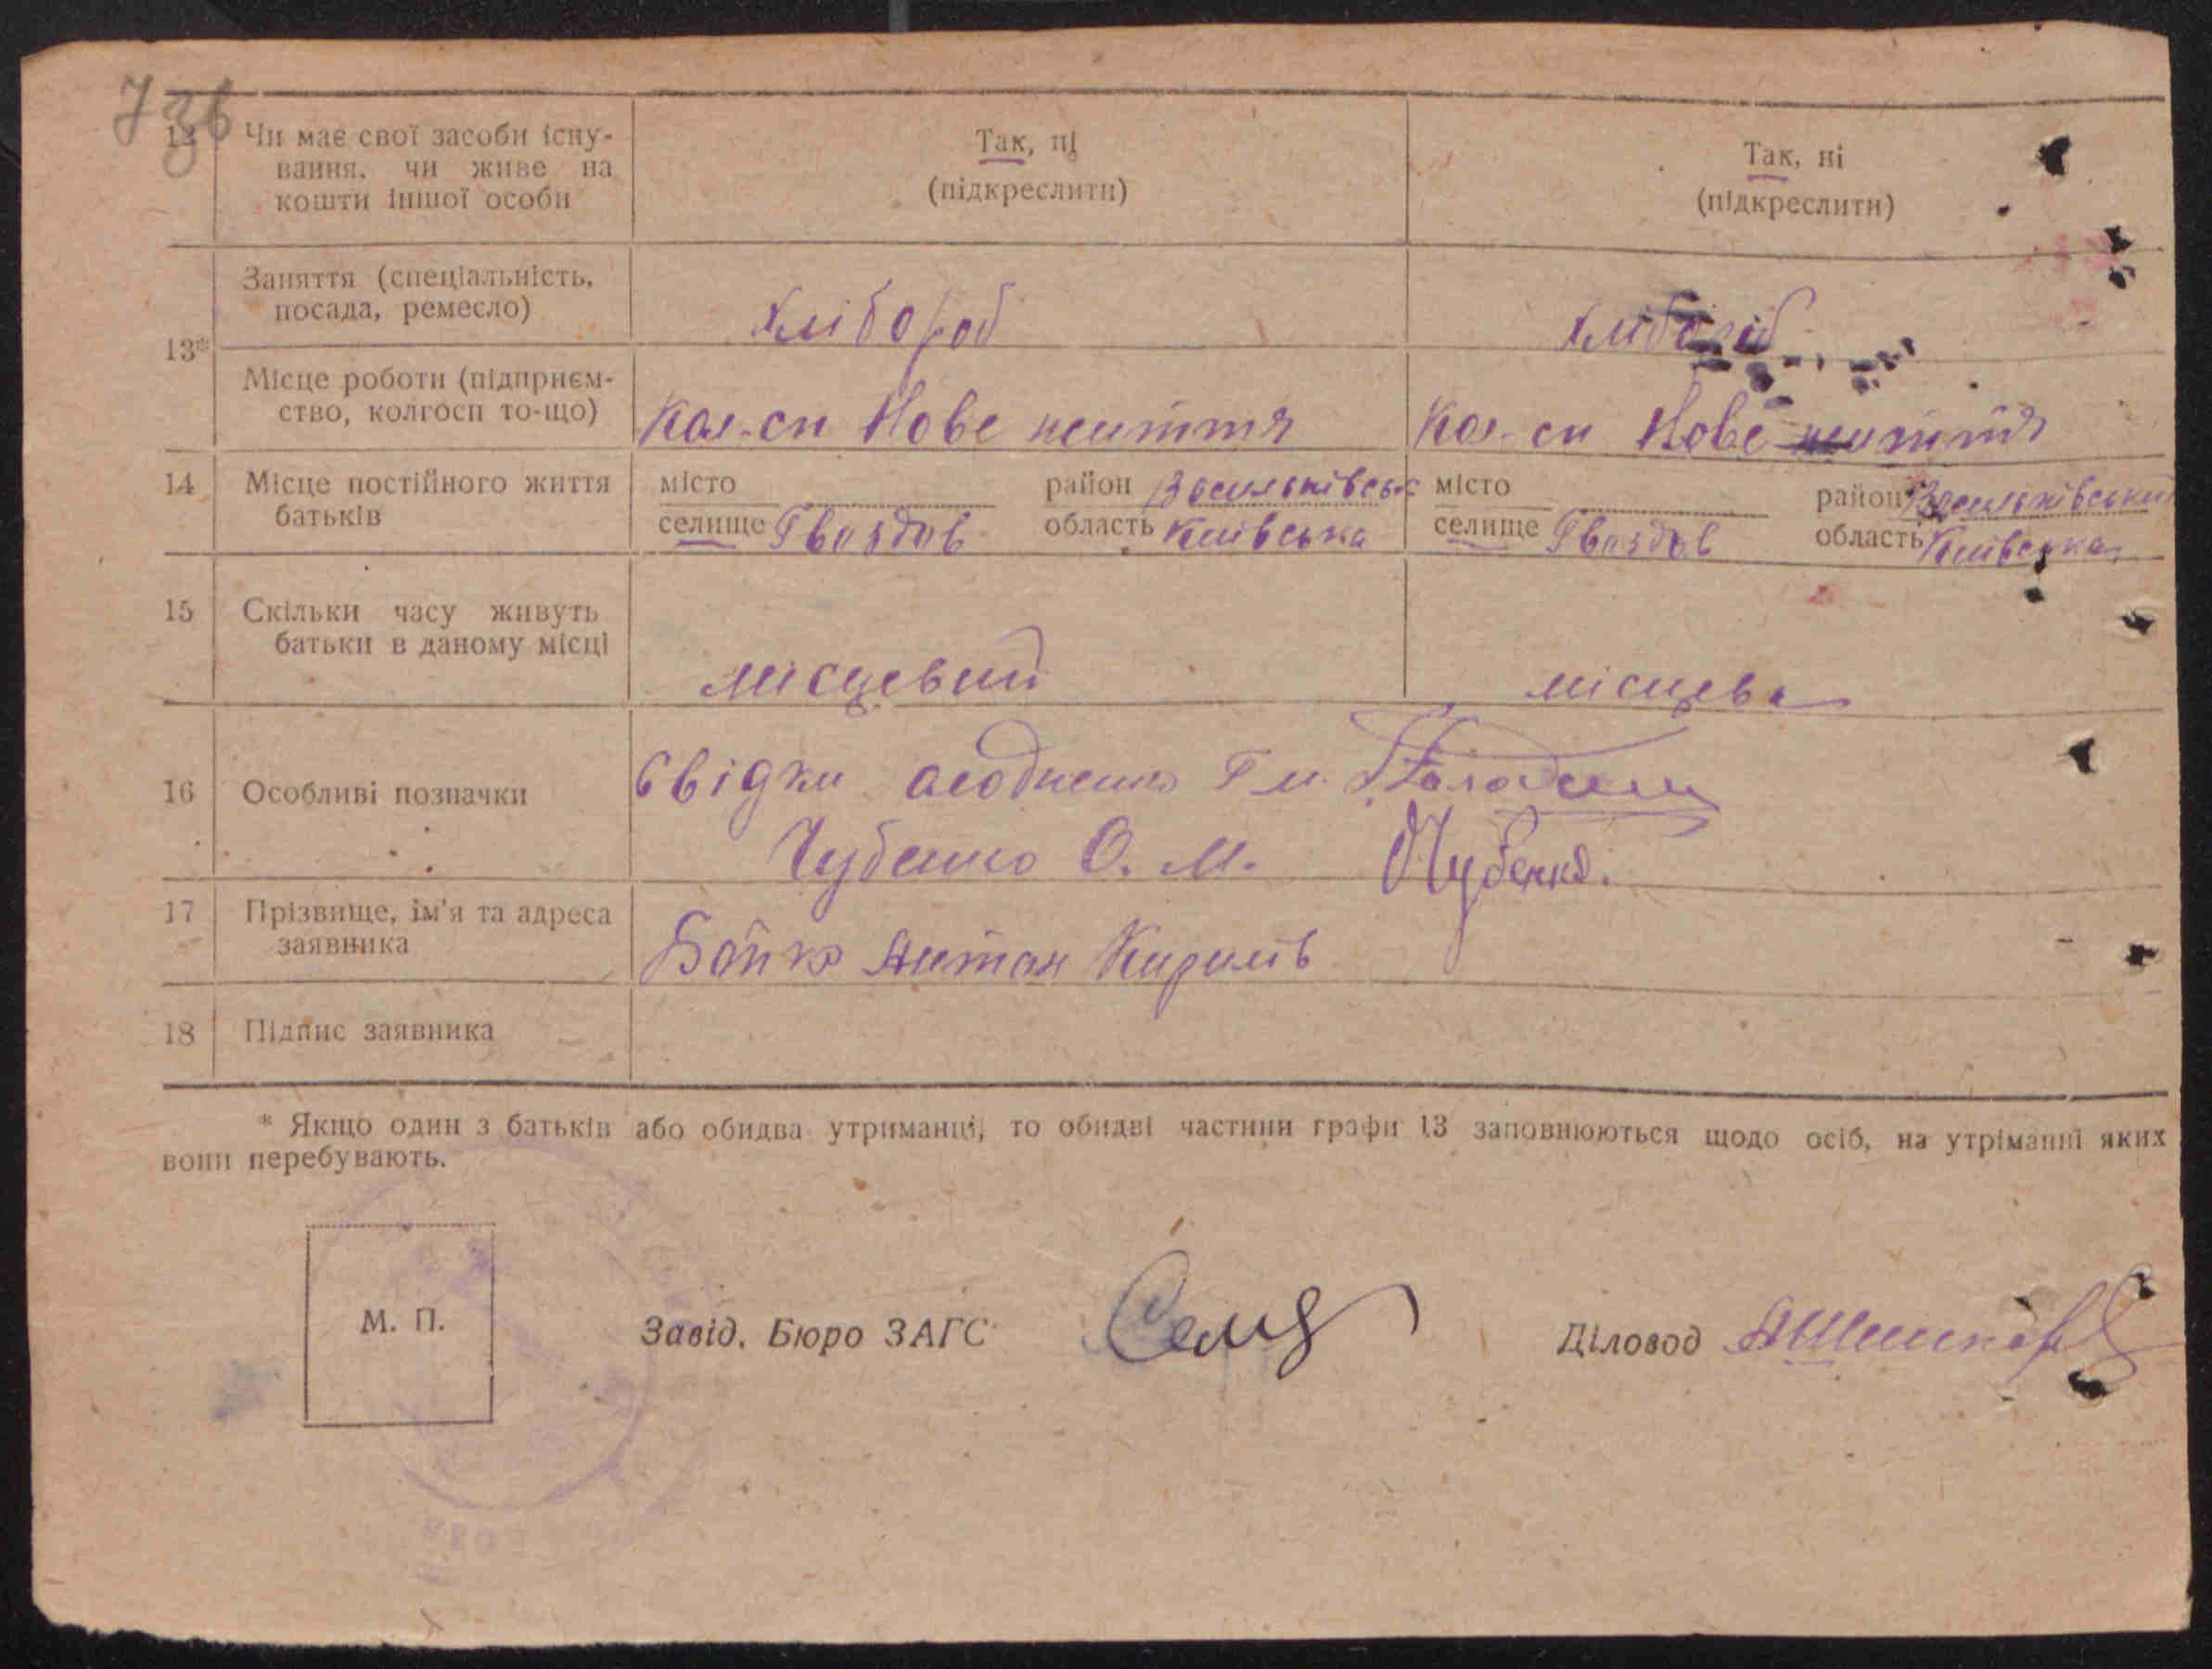 73в
12 Чи має свої засоби існу-
вання, чи живе на
кошти іншої особи
Так, ні
(підкреслити)
Так, ні
(підкреслити)
13*
Заняття (спеціальність,
посада, ремесло)
хлібороб
хлібороб
Місце роботи (підприєм-
ство, колгосп то-що)
Кол-сп Нове життя
Кол-сп Нове життя
14 Місце постійного життя
батьків
місто район Васильківськ
селище Гвоздов область Київська
місто район Васильківський
селище Гвоздов область Київська
15 Скільки часу живуть
батьки в даному місці
місцевий
місцева
16 Особливі позначки
Свідки
Чубенко О. М. Чубенко.
17 Прізвище, ім'я та адреса
заявника
Бойко Антон Кирилів
18 Підпис заявника
* Якщо один з батьків або обидва утриманці, то обидві частини графи 13 заповнюються щодо осіб, на утріманні яких
вони перебувають.
М. П.
Завід. Бюро ЗАГС
Діловод